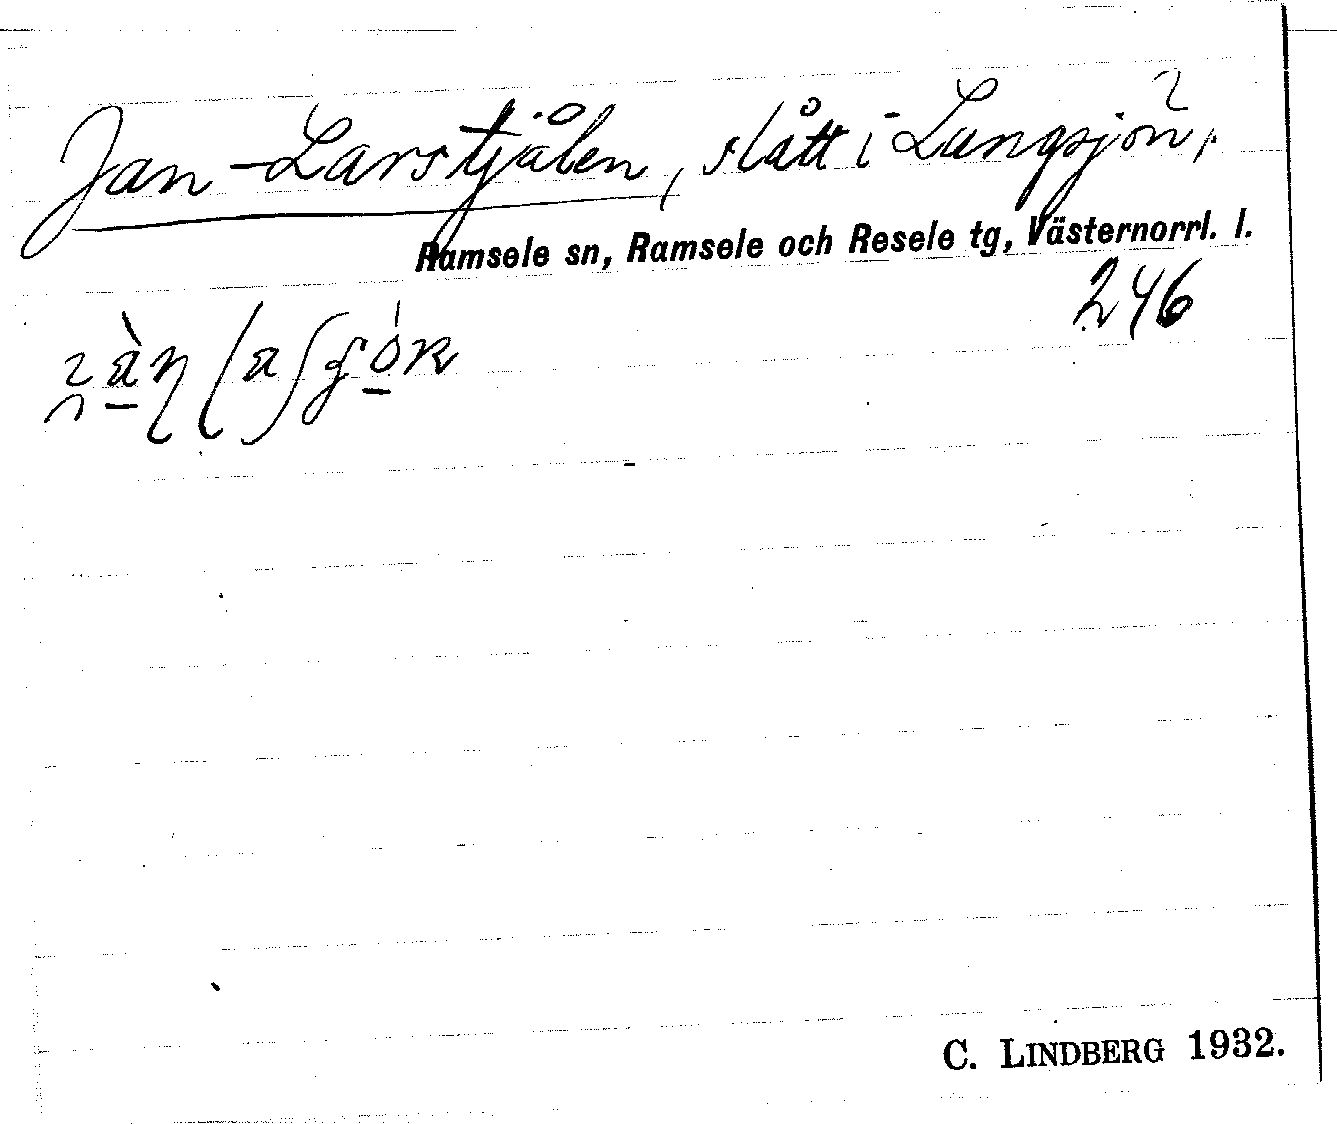 Jan-Larstjålen, slått i Långsjön,
Ramsele sn, Ramsele och Resele tg, Västernorrl. l.
246
C. LINDBERG 1932.